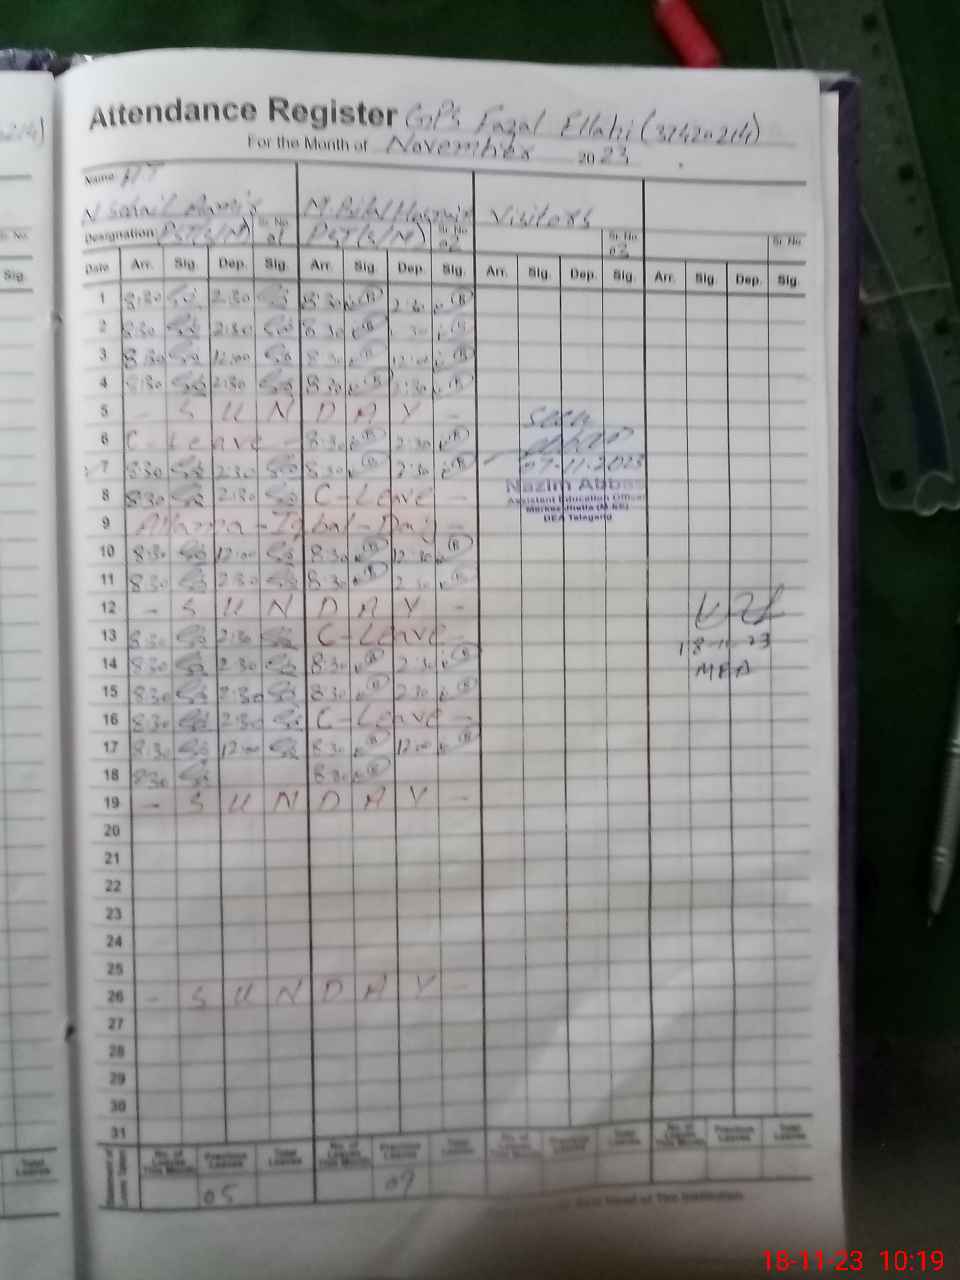 Attendance Register GPS Fazal Ellahi (37420214)
For the Month of November 2023
Name HT
M. Sohail Aamir M. Bilal Hasnain Visitors
Designation PST(S/M) Sr. No 01 PST(S/M) Sr. No 02 Sr. No 03 Sr. No
Date Arr. Sig. Dep. Sig. Arr. Sig. Dep. Sig. Arr. Sig. Dep. Sig. Arr. Sig. Dep. Sig.
1 8:30 2:30 8:30 2:30
2 8:30 2:30 8:30 :30
3 8:30 12:00 8:30 12:00
4 8:30 2:30 8:30 2:30
5 - S U N D A Y - Seen
6 C - Leave - 8:30 2:30
7 8:30 2:30 8:30 2:30 07-11-2023
Nazim Abbas
8 8:30 2:30 C-Leave -
Assistant Education Officer
DEA Talagang
9 Allama-Iqbal-Day -
10 8:30 12:00 8:30 12:30
11 8:30 2:30 8:30 2:30
12 - S U N D A Y -
13 8:30 2:30 C-Leave - 18-11-23
14 8:30 2:30 8:30 2:30 MEA
15 8:30 2:30 8:30 2:30
16 8:30 2:30 C-Leave -
17 8:30 12:00 8:30 12:00
18 8:30 8:30
19 - S U N D A Y -
20
21
22
23
24
25
26 - S U N D A Y -
27
28
29
30
31
No. of Leaves This Month Previous Leaves Total Leaves No. of Leaves This Month Previous Leaves Total Leaves No. of Leaves This Month Previous Leaves Total Leaves No. of Leaves This Month Previous Leaves Total Leaves
05 09
Head of The Institution
18-11-23 10:19